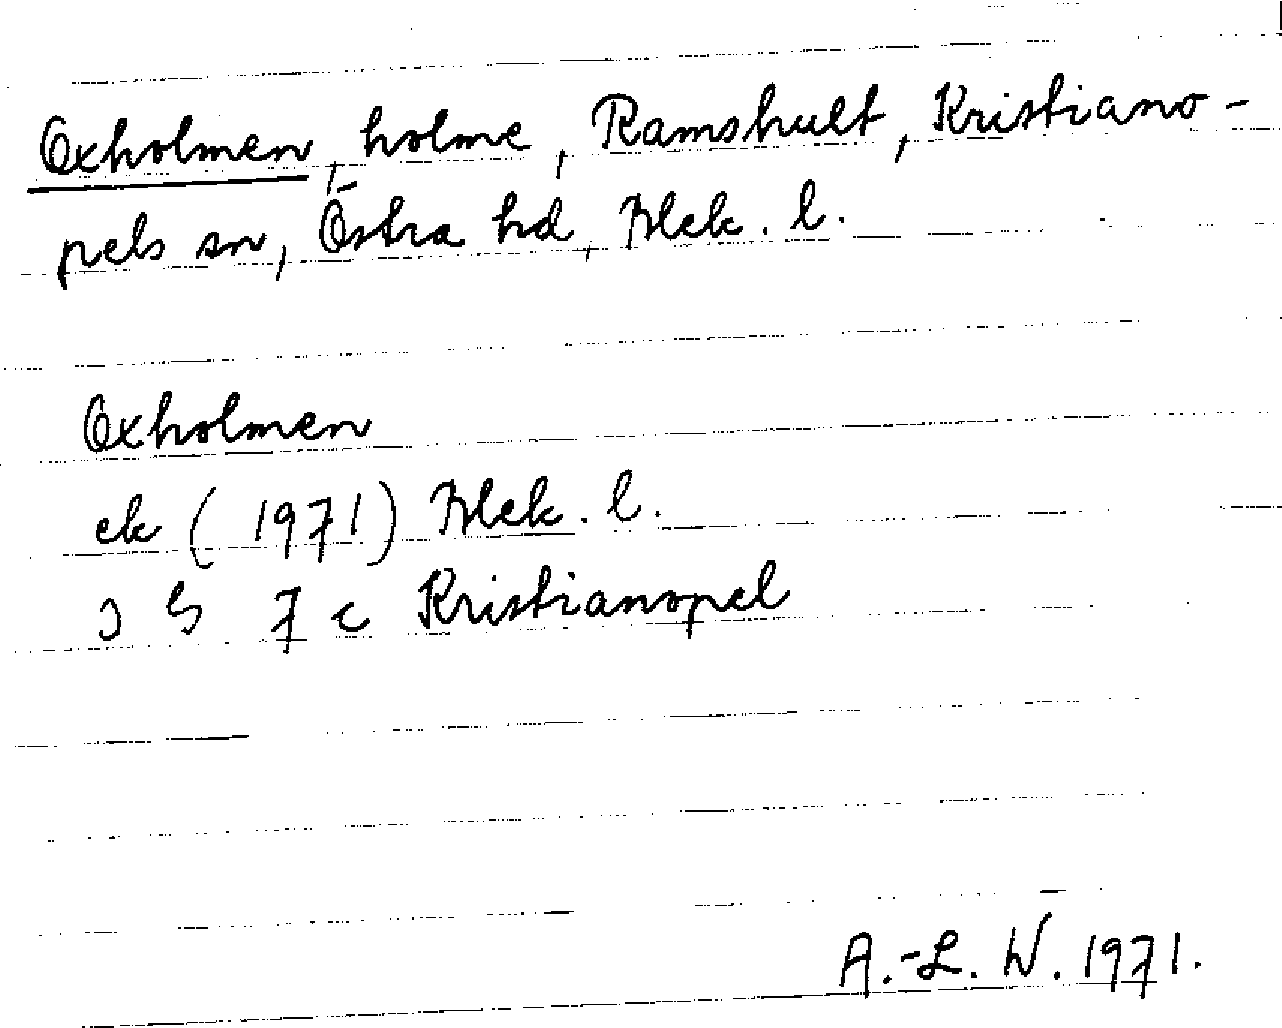 Oxholmen, holme, Ramshult, Kristiano-
pels sn, Östra hd, Blek. l.
Oxholmen
ek (1971) Blek. l.
3 G 7 c Kristianopel
A.-L. W. 1971.